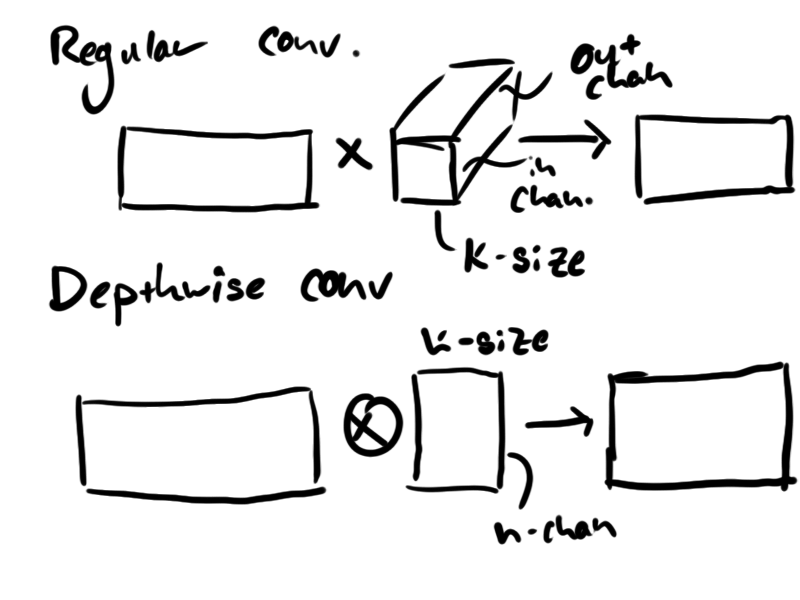 Regular conv.
out
chan
x
in
chan.
K-size
Depthwise conv
K-size
n-chan